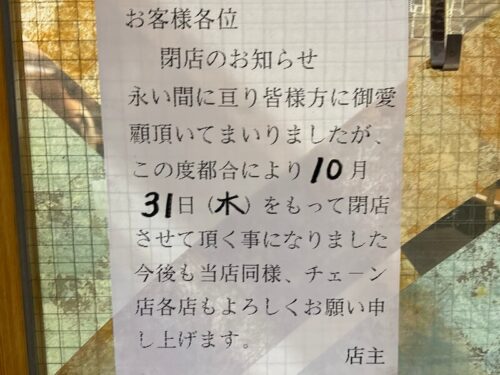 お客様各位
閉店のお知らせ
永い間に亘り皆様方に御愛
顧頂いてまいりましたが、
この度都合により10月
31日（木）をもって閉店
させて頂く事になりました
今後も当店同様、チェーン
店各店もよろしくお願い申
し上げます。
店主